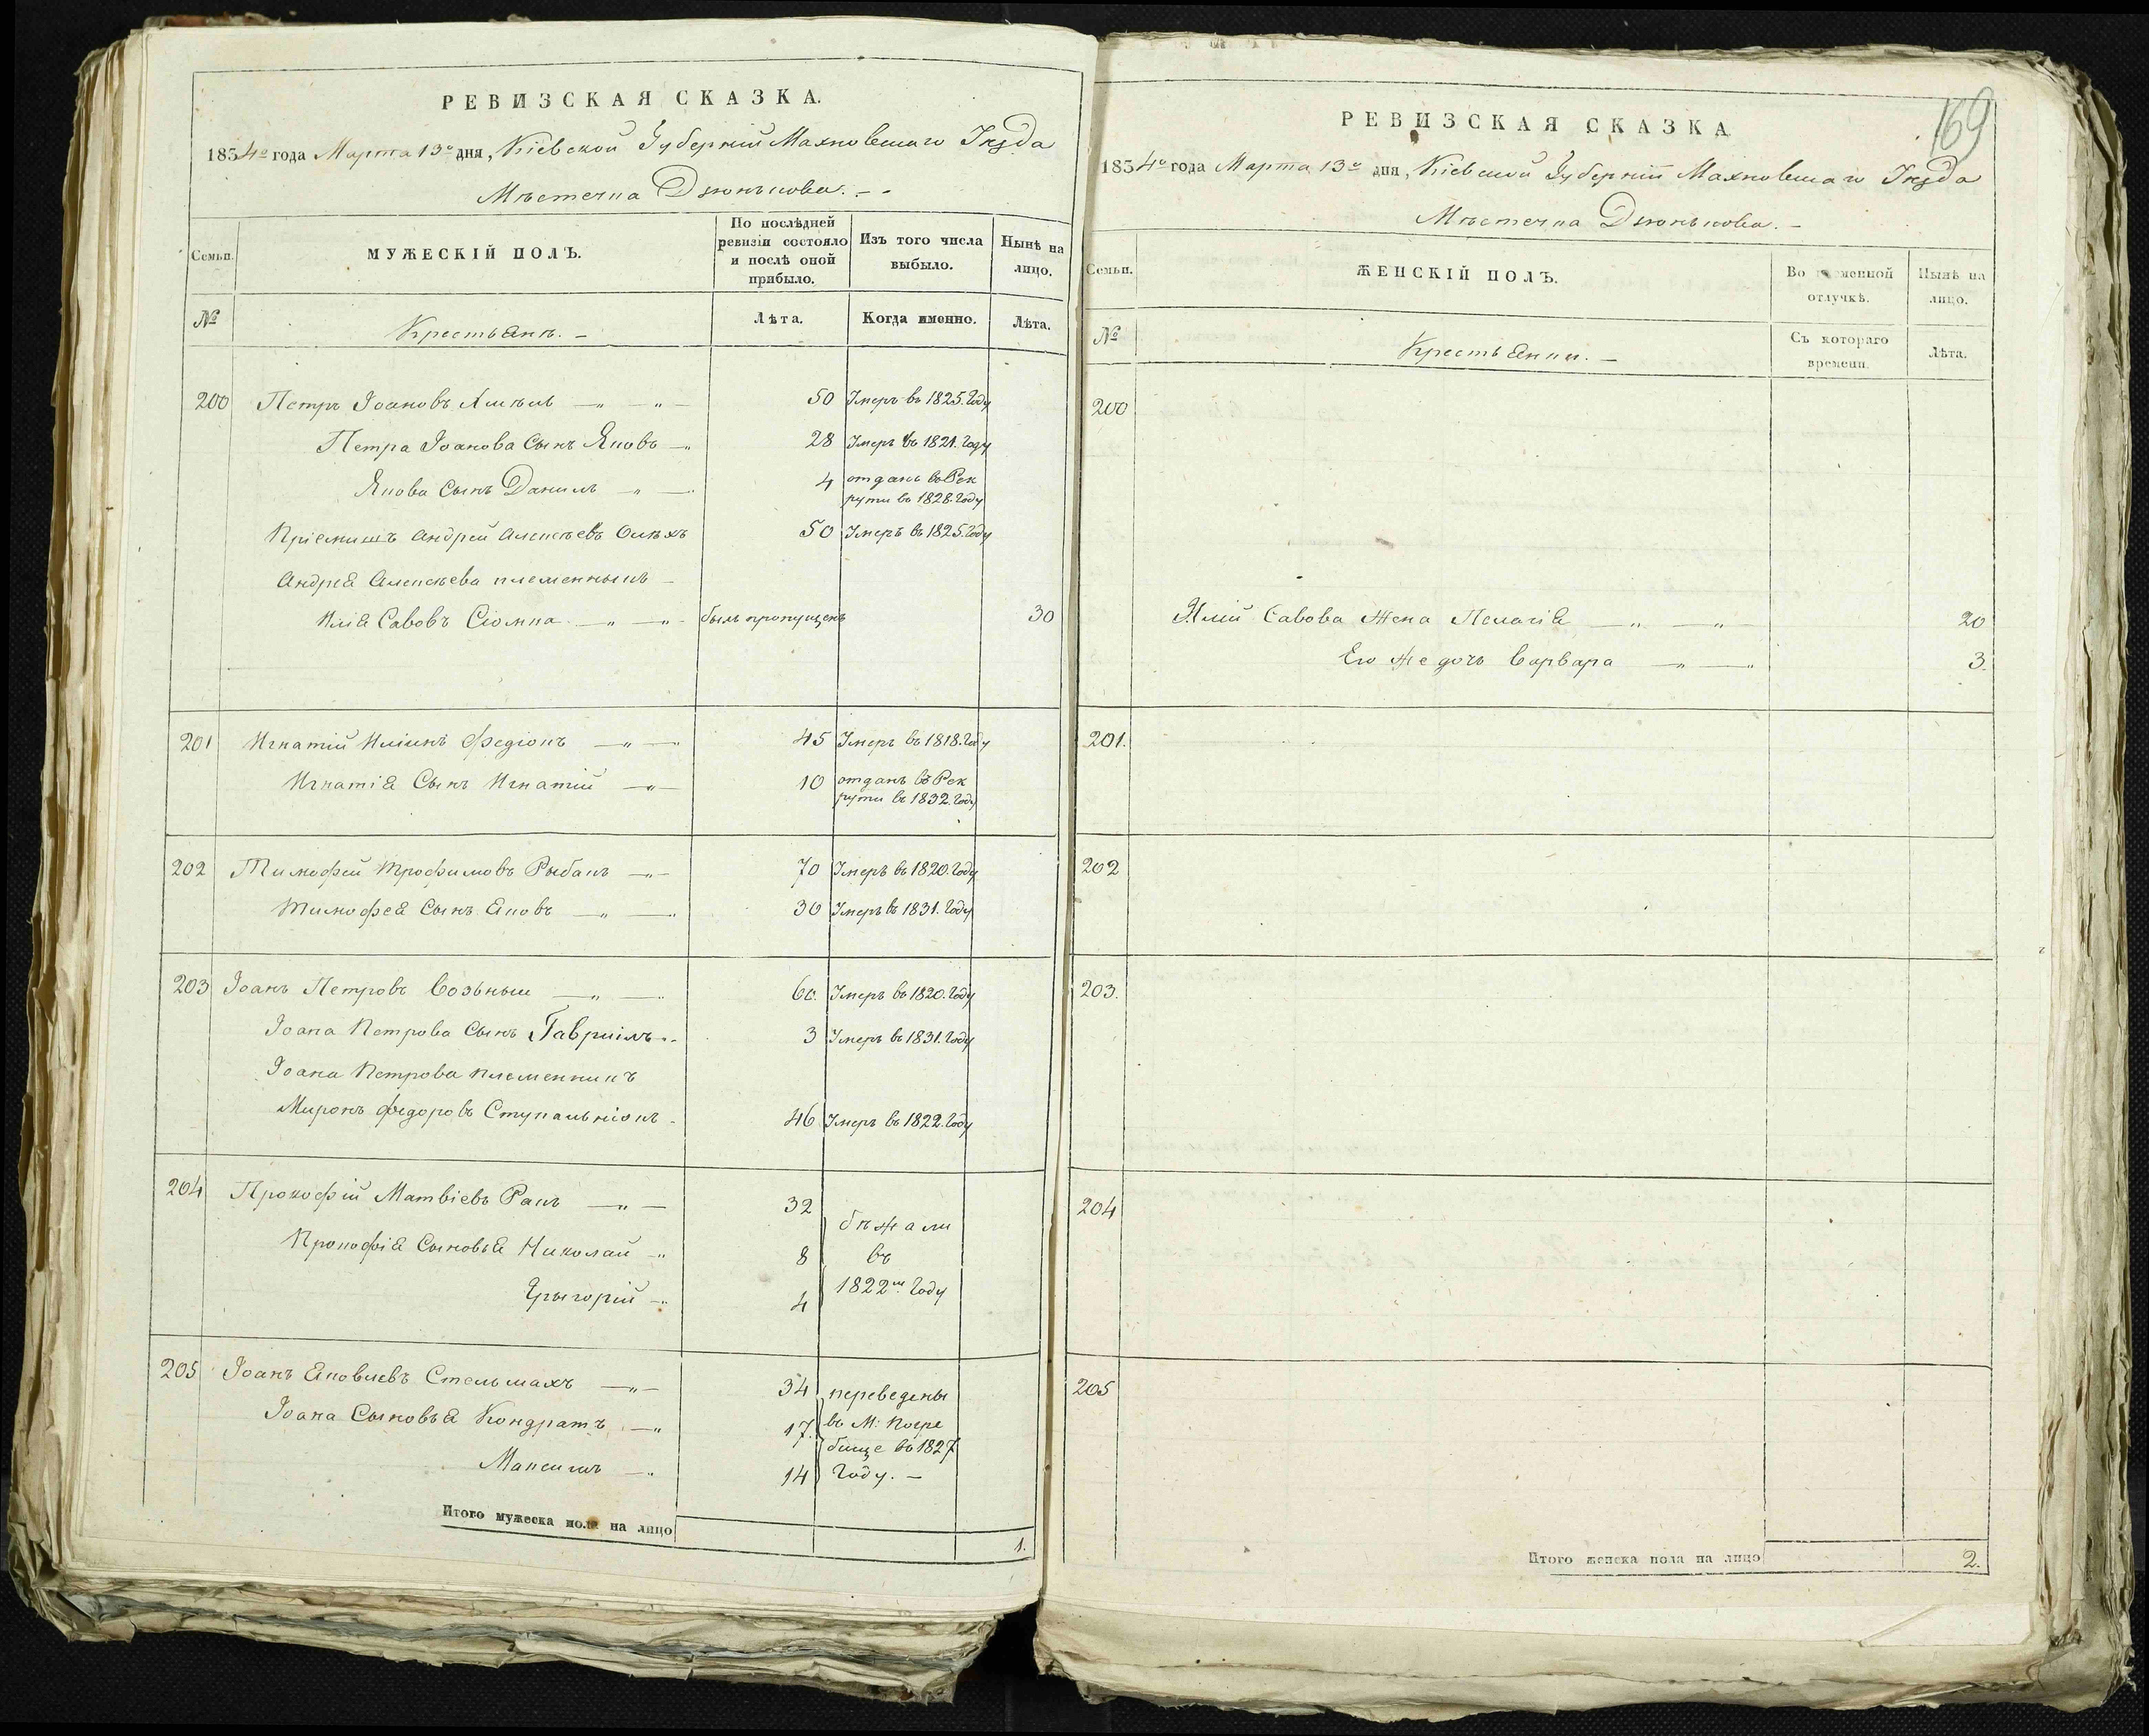 РЕВИЗСКАЯ СКАЗКА.
1854го года Марта 13го дня, Кіевской Губерніи Махновскаго Уѣзда
Мѣстечка Дзюнькова. –
Семьи.
МУЖЕСКІЙ ПОЛЪ.
По послѣдней ревизіи состояло и послѣ оной прибыло.
Изъ того числа выбыло.
Нынѣ на лицо.
№
Крестьянъ. –
Лѣта.
Когда именно.
Лѣта.
200 Петръ Іоановъ 50 Умеръ въ 1825. Году
Петра Іоанова Сынъ Яковъ 28 Умеръ въ 1821. Году
Якова Сынъ Данилъ 4 отданъ въ Рек
рути въ 1828. Году
Пріемишъ Андрей Алексѣевъ 50 Умеръ въ 1825. Году
Андрея Алексѣева племенныкъ
Илія Савовъ Сіомка былъ пропущенъ 30
201 Игнатій Иліинъ Федіокъ 45 Умеръ въ 1818. Году
Игнатія Сынъ Игнатій 10 отданъ въ Рек
рути въ 1832. Году
202 Тимофей Трофимовъ Рыбакъ 70 Умеръ въ 1820. Году
Тимофея Сынъ Яковъ 30 Умеръ въ 1831. Году
203 Іоанъ Петровъ Возьный 60. Умеръ въ 1820. Году
Іоана Петрова Сынъ Гавріилъ 3 Умеръ въ 1831. Году
Іоана Петрова племенникъ
Миронъ Федоровъ Ступальніокъ 46 Умеръ въ 1822. Году
204 Прокофій Матвіевъ Ракъ 32 бѣжали
Прокофія Сыновья Николай 8 въ
Грыгорій 4 1822мъ Году
205 Іоанъ Яковлевъ Стельмахъ 34 переведены
Іоана Сыновья Кондратъ 17. въ М: Погре
бище въ 1827
Максимъ 14 Году. –
Итого мужеска пола на лицо 1.
169
РЕВИЗСКАЯ СКАЗКА
1854го года Марта 13го дня, Кіевской Губерніи Махновскаго Уѣзда
Мѣстечка Дзюнькова. –
Семьи.
ЖЕНСКІЙ ПОЛЪ.
Во временной отлучкѣ.
Нынѣ на лицо.
№
Крестьянки. –
Съ котораго времени.
Лѣта.
200
Иліи Савова Жена Пелагія 20
Его же дочь Варвара 3.
201.
202
203.
204
205
Итого женска пола на лицо 2.